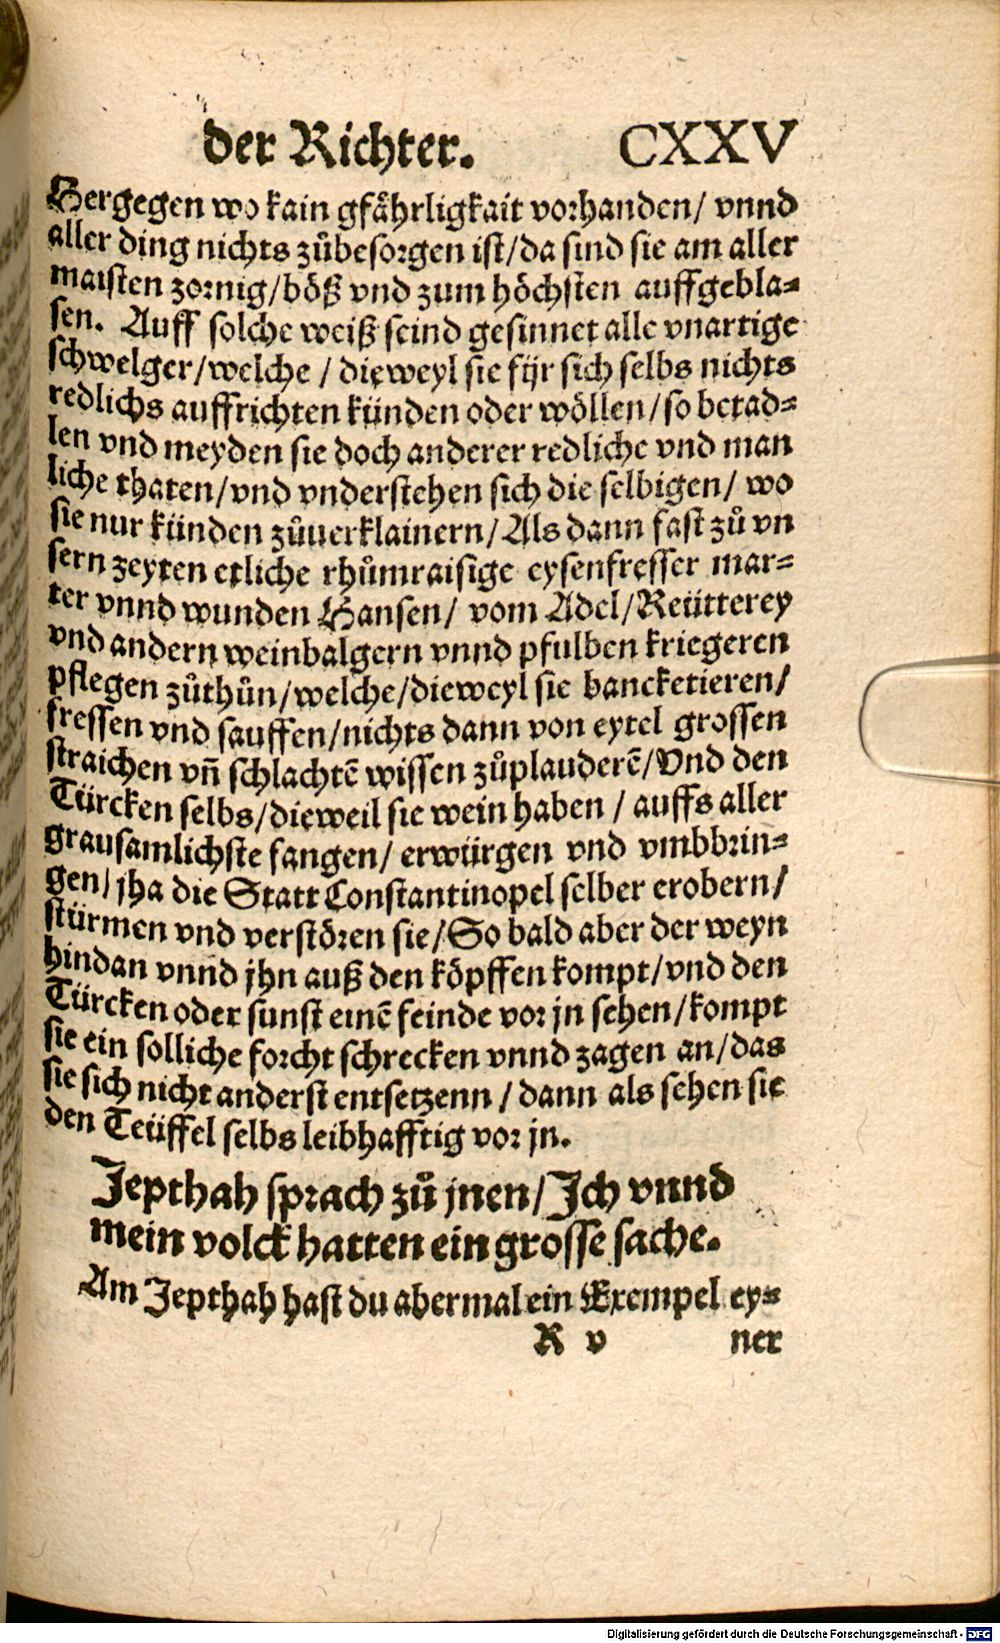 der Richter. CXXV
Hergegen wo kain gfåhrligkait vorhanden/ vnnd
aller ding nichts zůbesorgen ist/da sind sie am aller
maisten zornig/böß vnd zum höchsten auffgebla-
sen. Auff solche weiß seind gesinnet alle vnartige
schwelger/welche / dieweyl sie für sich selbs nichts
redlichs auffrichten künden oder wöllen/so betad-
len vnd meyden sie doch anderer redliche vnd man
liche thaten/vnd vnderstehen sich die selbigen/ wo
sie nur künden zůuerklainern/Als dann fast zů vn
sern zeyten etliche rhůmraisige eysenfresser mar-
ter vnnd wunden Hansen/ vom Adel/Reütterey
vnd andern weinbalgern vnnd pfulben kriegeren
pflegen zůthůn/welche/dieweyl sie bancketieren/
fressen vnd sauffen/nichts dann von eytel grossen
straichen vñ schlachtẽ wissen zůplauderẽ/Vnd den
Türcken selbs/dieweil sie wein haben / auffs aller
grausamlichste fangen/ erwürgen vnd vmbbrin-
gen/ jha die Statt Constantinopel selber erobern/
stürmen vnd verstören sie/So bald aber der weyn
hindan vnnd jhn auß den köpffen kompt/vnd den
Türcken oder sunst einẽ feinde vor jn sehen/kompt
sie ein solliche forcht schrecken vnnd zagen an/das
sie sich nicht anderst entsetzenn / dann als sehen sie
den Teüffel selbs leibhafftig vor jn.
Jepthah sprach zů jnen/Ich vnnd
mein volck hatten ein grosse sache.
Am Jepthah hast du abermal ein Exempel ey-
R v ner
Digitalisierung gefördert durch die Deutsche Forschungsgemeinschaft - DFG